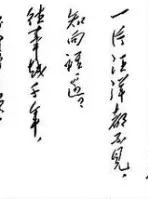 一片汪洋都不見，
知向誰邊？
往事越千年，